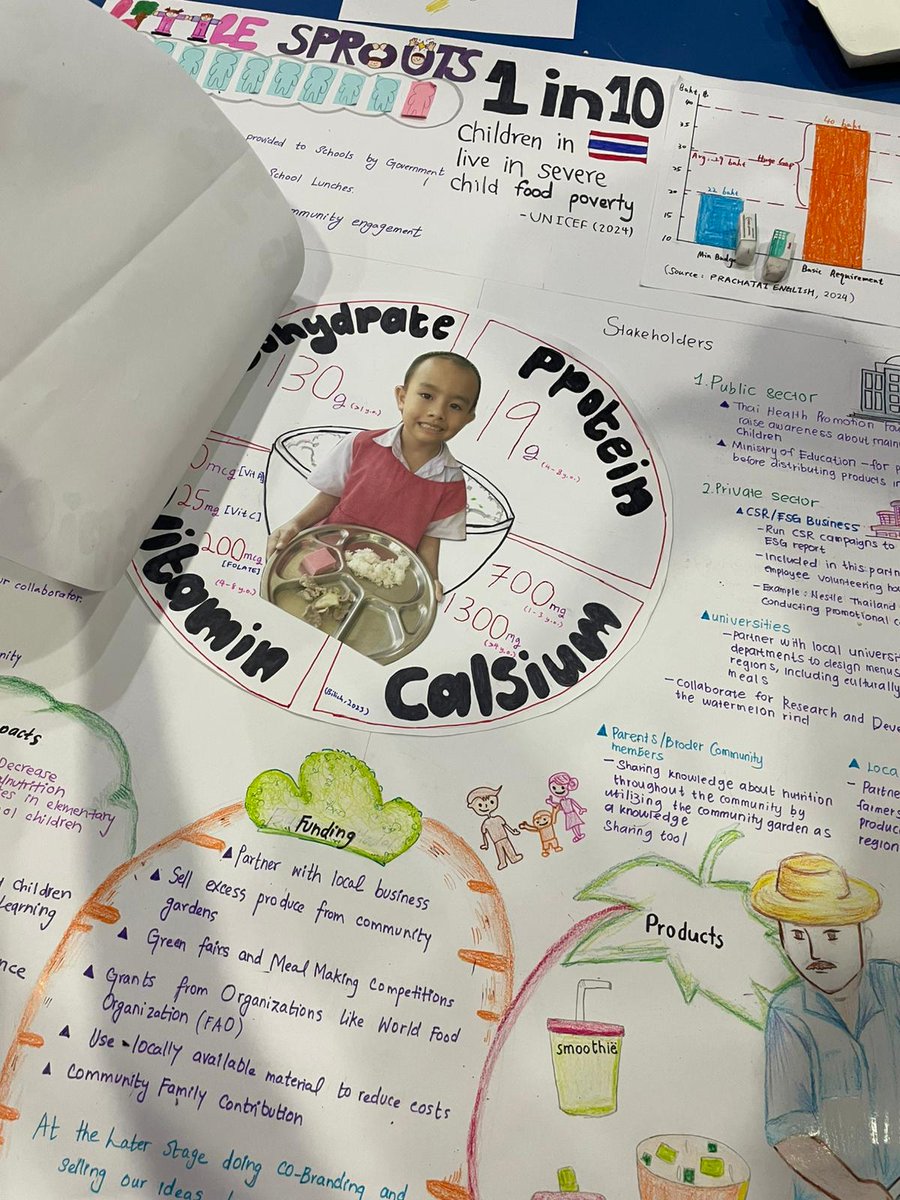 LITTLE SPROUTS
1 in 10
Children in
live in severe
child food poverty
- UNICEF (2024)
provided to Schools by Government
School Lunches.
community engagement
Baht ฿
40
35
30
25
20
15
10
40 baht
Avg. 29 baht
Huge Gap
22 baht
Min Budget
Basic Requirement
(Source: PRACHATAI ENGLISH, 2024)
ohydrate
130g (>1 y.o.)
Pprotein
19g (4-8 y.o.)
mcg [Vit A]
25mg [Vit C]
200mcg
[FOLATE]
(4-8 y.o.)
Vitomin
700mg
(1-3 y.o.)
1300mg
Calsium
Stakeholders
1. Public sector
▲ Thai Health Promotion Fou
raise awareness about
Children
▲ Ministry of Education - for
before distributing products in
2. Private sector
▲ CSR/ESG Business
- Run CSR campaigns to
ESG report
- Included in this part
employee volunteering
- Example: Nestle Thailand
Conducting promotional
▲ universities
- Partner with local universi
departments to design menus
regions, including culturally
meals
- Collaborate for Research and Deve
the watermelon rind
▲ Parents/Broder Community
members
- Sharing knowledge about nutrition
throughout the community by
utilizing the community garden as
a knowledge
Sharing tool
▲ Loca
- Partne
farmers
produc
region
ur collaborator.
nity
pacts
Decrease
lnutrition
tes in elementary
ol children
children
Learning
nce
Funding
▲ Partner with local business
▲ Sell excess produce from community
gardens
▲ Green fairs and Meal Making Competitions
▲ Grants from Organizations like World Food
Organization (FAO)
▲ Use - locally available material to reduce costs
▲ Community Family Contribution
At the Later Stage doing co-Branding and
selling our ideas
Products
smoothie